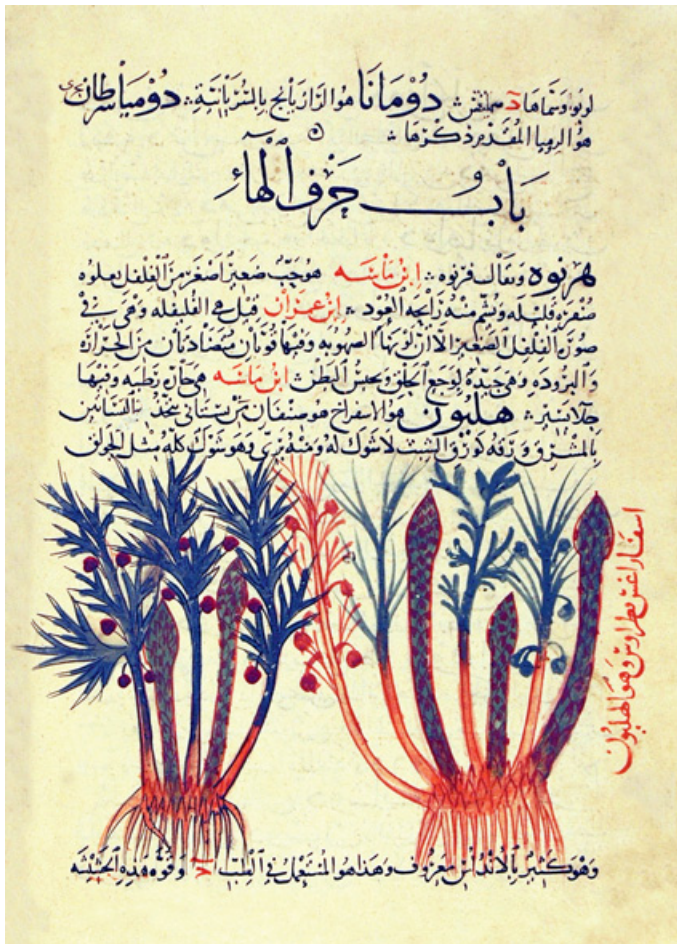 لوبوا وسماها د دومانا هو الزازيانج بالسريانية دومياسرطان
هو الرميا المقدم ذكرها
باب حرف الهاء
هرنوه ويقال قرنوه ابن ماسه هو حب صغير اصغر من الفلفل يعلوه
صفرة قليله ويشم منه رائحه العود ابن عمران قيل هي الفليفله وهي في
صورة الفلفل الصغير الا ان لونها الى الصهوبه وفيها قوتان متضادتان من الحرارة
والبرودة وهي جيدة لوجع الحلق ويحبس البطن ابن ماسه هي حارة رطبه وفيها
هليون هو الاسفراج هو صنفان من بستاني يتخذ في البساتين
بالمشرق ورقه كورق الشبت لا شوك له ومنه بري وهو شوك كله مثل الجولق
اسفاراغس بطراوس وهو الهليون
وهو كثير بالاندلس معروف وهذا هو المستعمل في الطب وقوة هذه الحشيشه